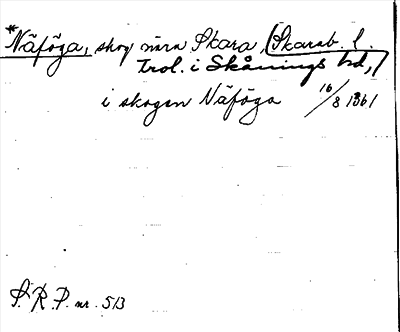 *Näföga, skog nära Skara, (Skarab. l.
Trol. i Skånings hd,)
i skogen Näföga 16/8 1361
S. R. P. nr. 513